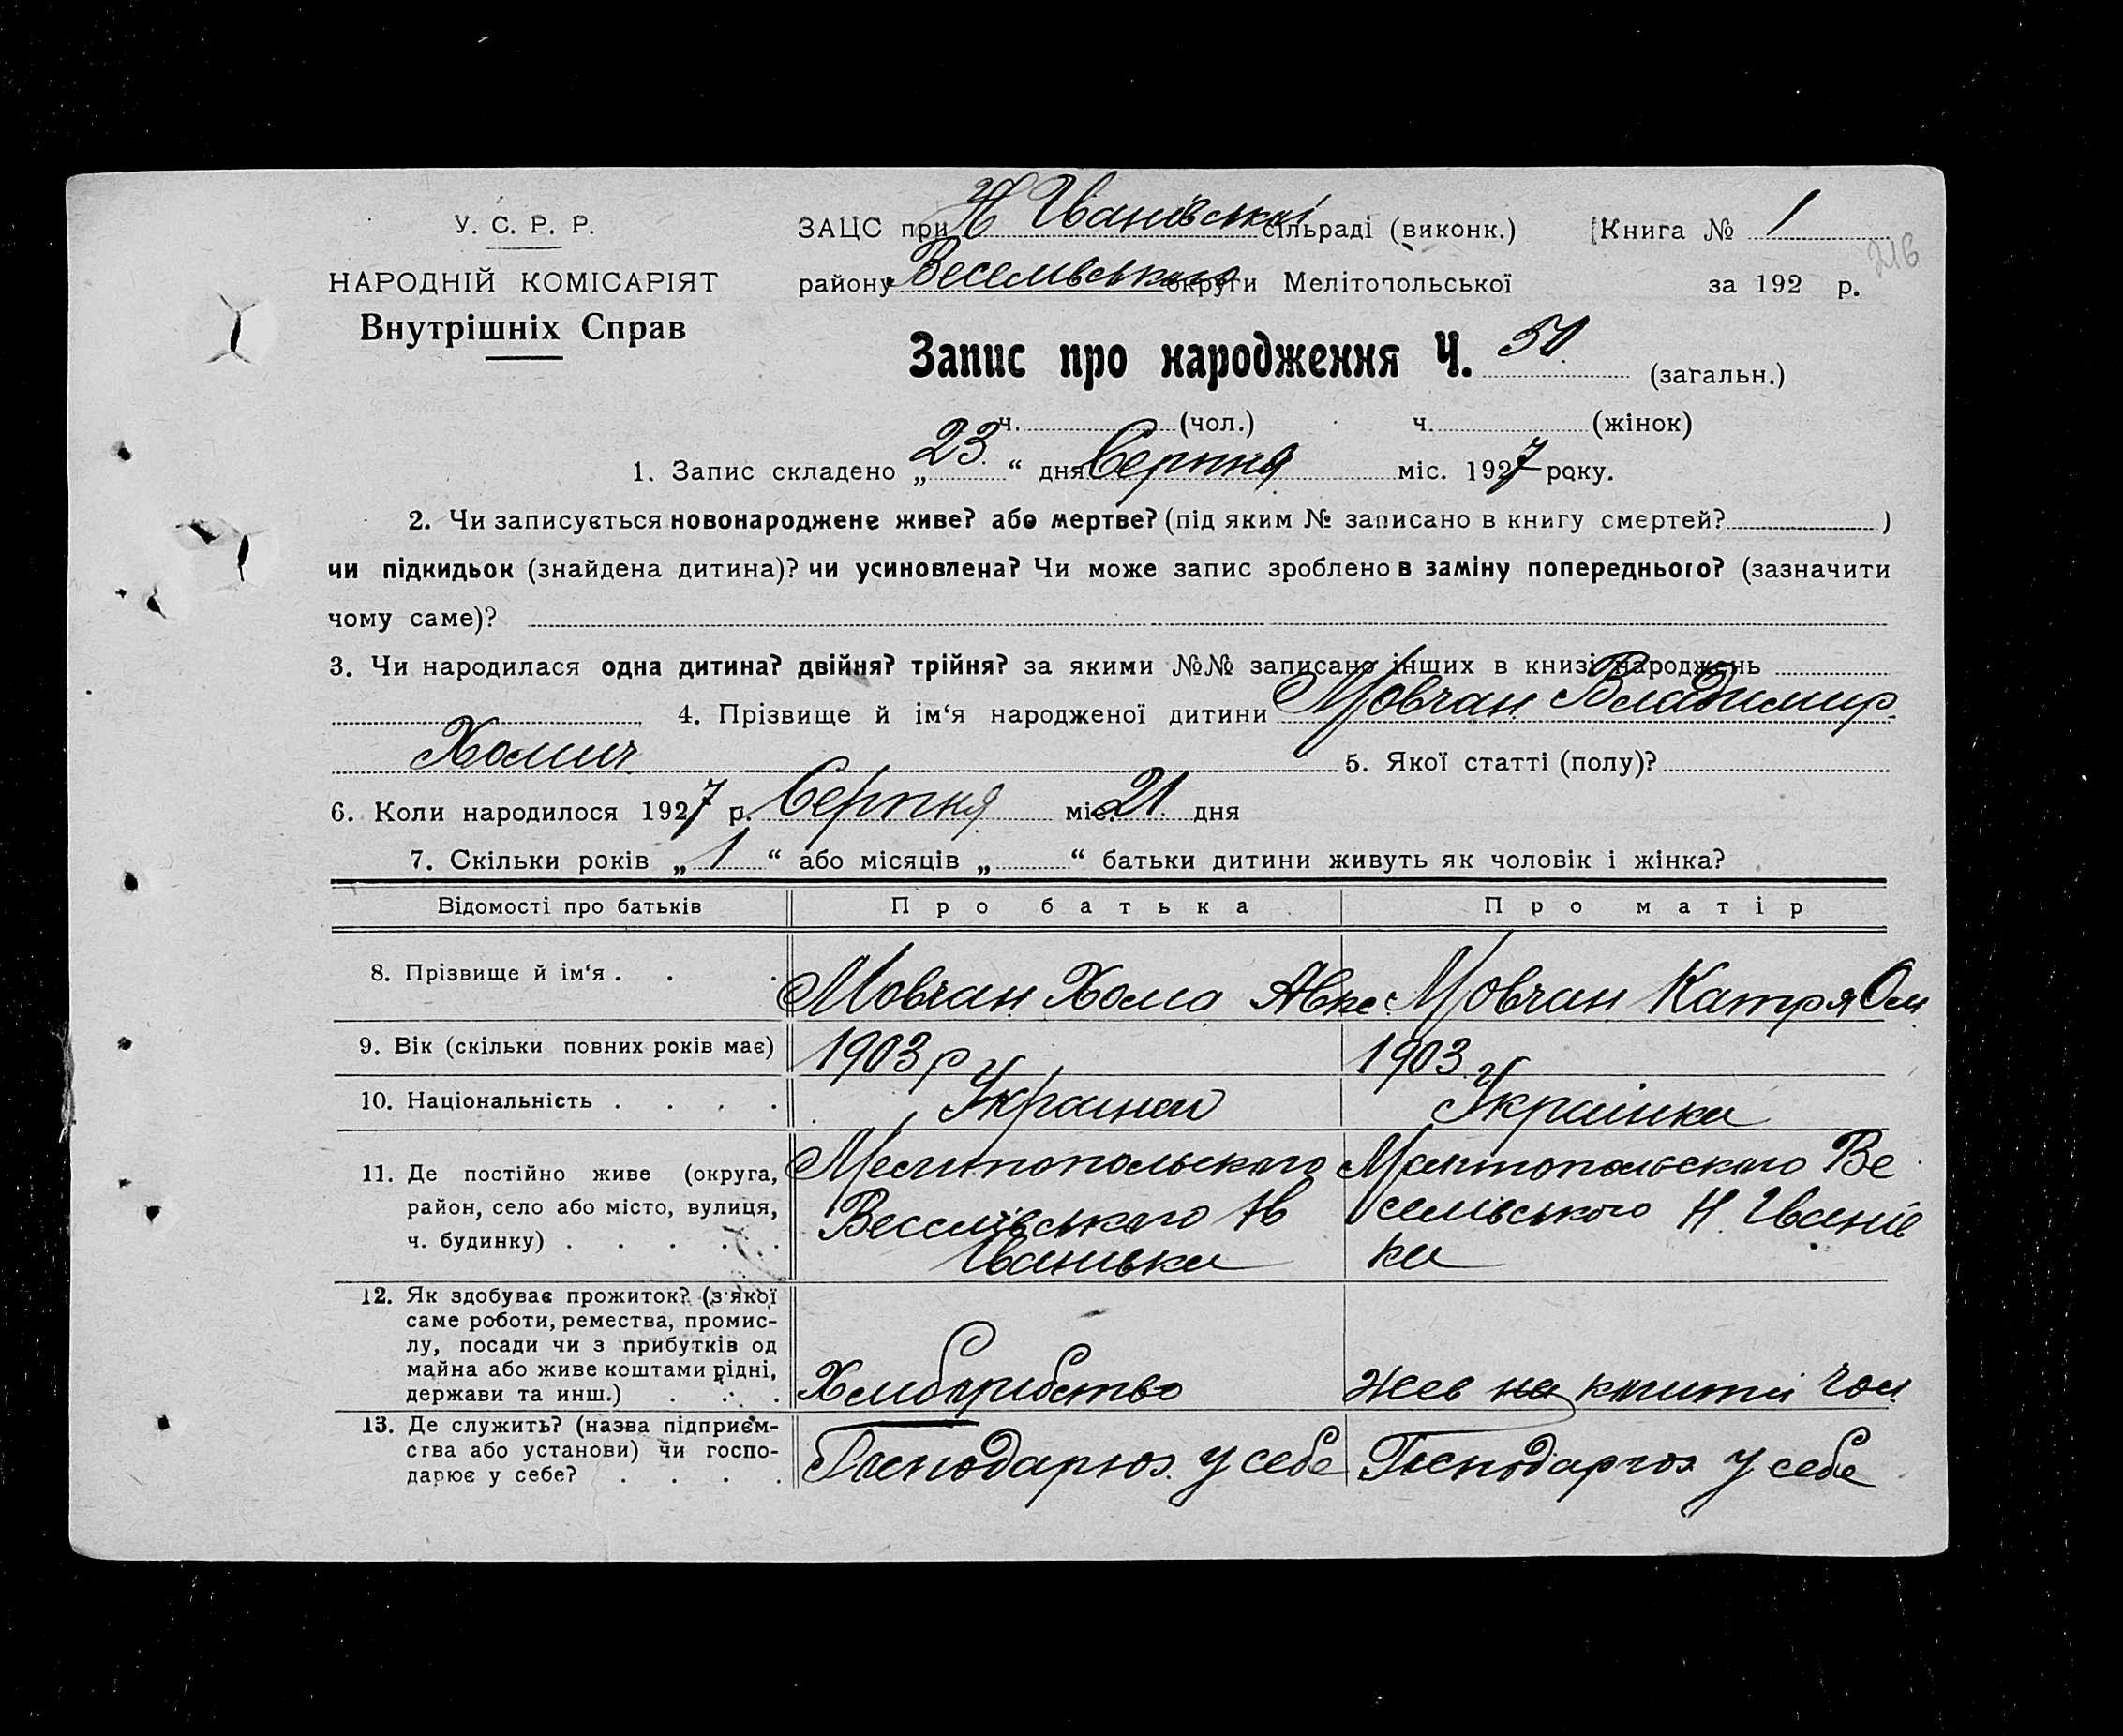 У. С. Р. Р.
НАРОДНІЙ КОМІСАРІЯТ
Внутрішніх Справ
ЗАЦС при Н Іванівській сільраді (виконк.) Книга № 1
216
району Веселівського округи Мелітопольської за 192 р.
Запис про народження Ч. (загальн.)
ч. (чол.) ч. (жінок)
1. Запис складено „ 23 “ дня Серпня міс. 1927 року.
2. Чи записується новонароджене живе? або мертве? (під яким № записано в книгу смертей? )
чи підкидьок (знайдена дитина)? чи усиновлена? Чи може запис зроблено в заміну попереднього? (зазначити
чому саме)?
3. Чи народилася одна дитина? двійня? трійня? за якими №№ записано інших в книзі народжень
4. Прізвище й ім‘я народженої дитини Мовчан Владимир
Хомич 5. Якої статті (полу)?
6. Коли народилося 1927 р. Серпня міс. 21 дня
7. Скільки років „ 1 “ або місяців „ “ батьки дитини живуть як чоловік і жінка?
Відомості про батьків Про батька Про матір
8. Прізвище й ім‘я . . . Мовчан Хома Авке Мовчан Катря Ом
9. Вік (скільки повних років має) 1903 р 1903
10. Національність . . . . Українка
11. Де постійно живе (округа, Мелитопольского Мелитопольского Ве
район, село або місто, вулиця, Веселівського Нв селівського Н. Іванів
ч. будинку) . . . . . Іванивка ка
12. Як здобуває прожиток? (з якої
саме роботи, ремества, промис-
лу, посади чи з прибутків од
майна або живе коштами рідні,
держави та инш.) . . . Хлиборобство на чол
13. Де служить? (назва підприєм-
ства або установи) чи госпо- Господарює у себе Господарює у себе
дарює у себе? . . . .